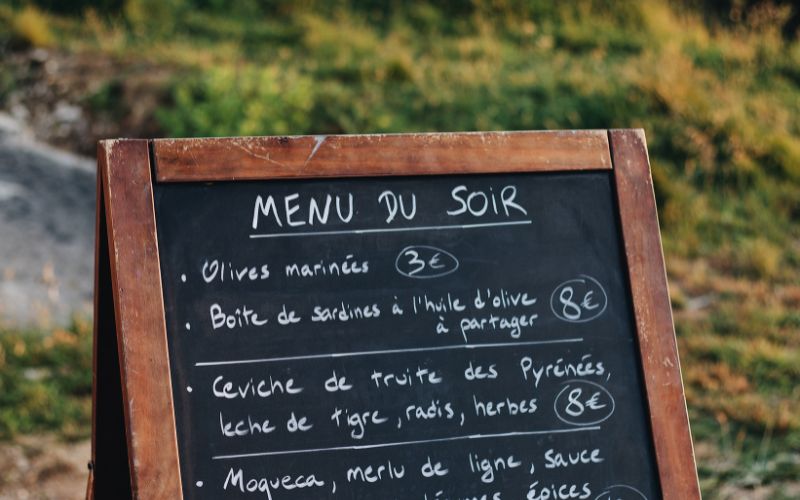 MENU DU SOIR
• Olives marinées 3€
• Boîte de sardines à l'huile d'olive 8€
à partager
• Ceviche de truite des Pyrénées,
leche de tigre, radis, herbes 8€
• Moqueca, merlu de ligne, sauce
légumes épices